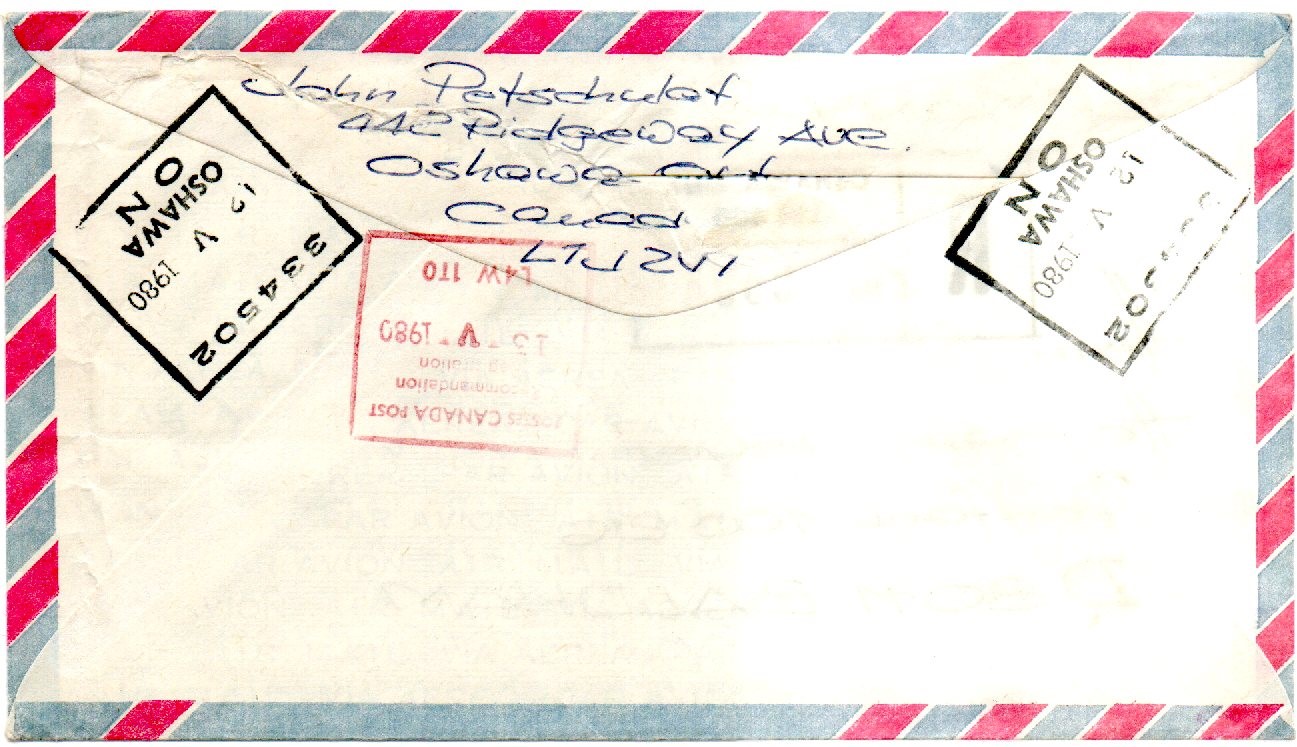 John Petschulat
442 Ridgeway Ave.
Oshawa Ont
Canada
L1J 2V1
12 V 1980
OSHAWA
ON
334502
POSTES CANADA POST
Recommandation
Registration
13 V 1980
L4W 1T0
12 V 1980
OSHAWA
ON
334502